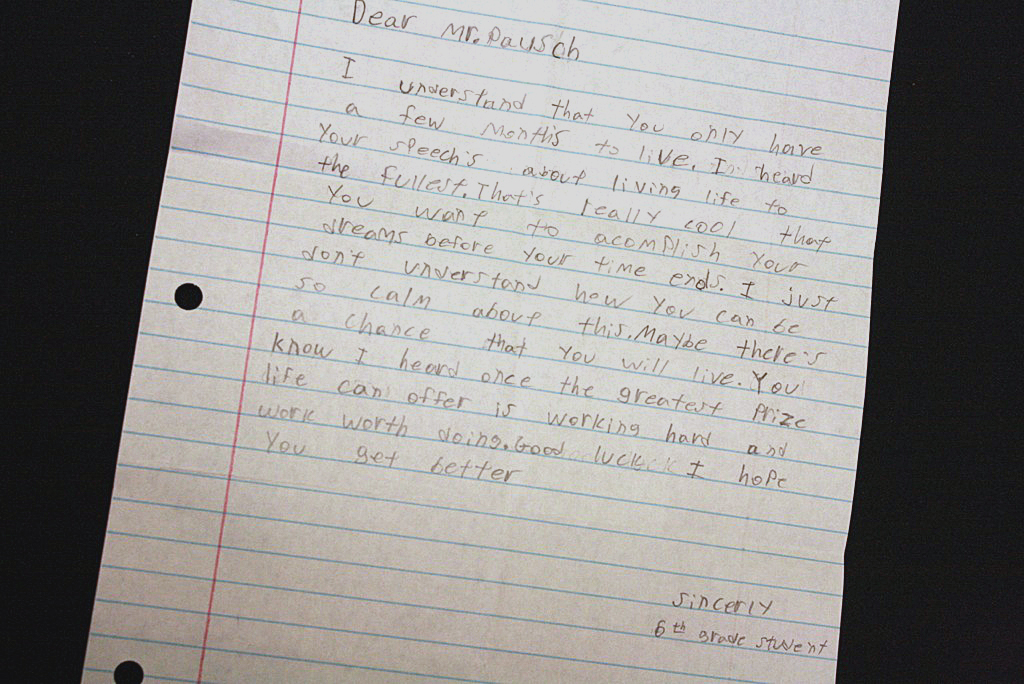 Dear Mr. Pausch
I understand that you only have
a few months to live. I heard
your speech's about living life to
the fullest. That's really cool that
you want to acomplish your
dreams before your time ends. I just
don't understand how you can be
so calm about this. Maybe there's
a chance that you will live. You
know I heard once the greatest prize
life can offer is working hard and
work worth doing. Good luck I hope
you get better
sincerly
6th grade student